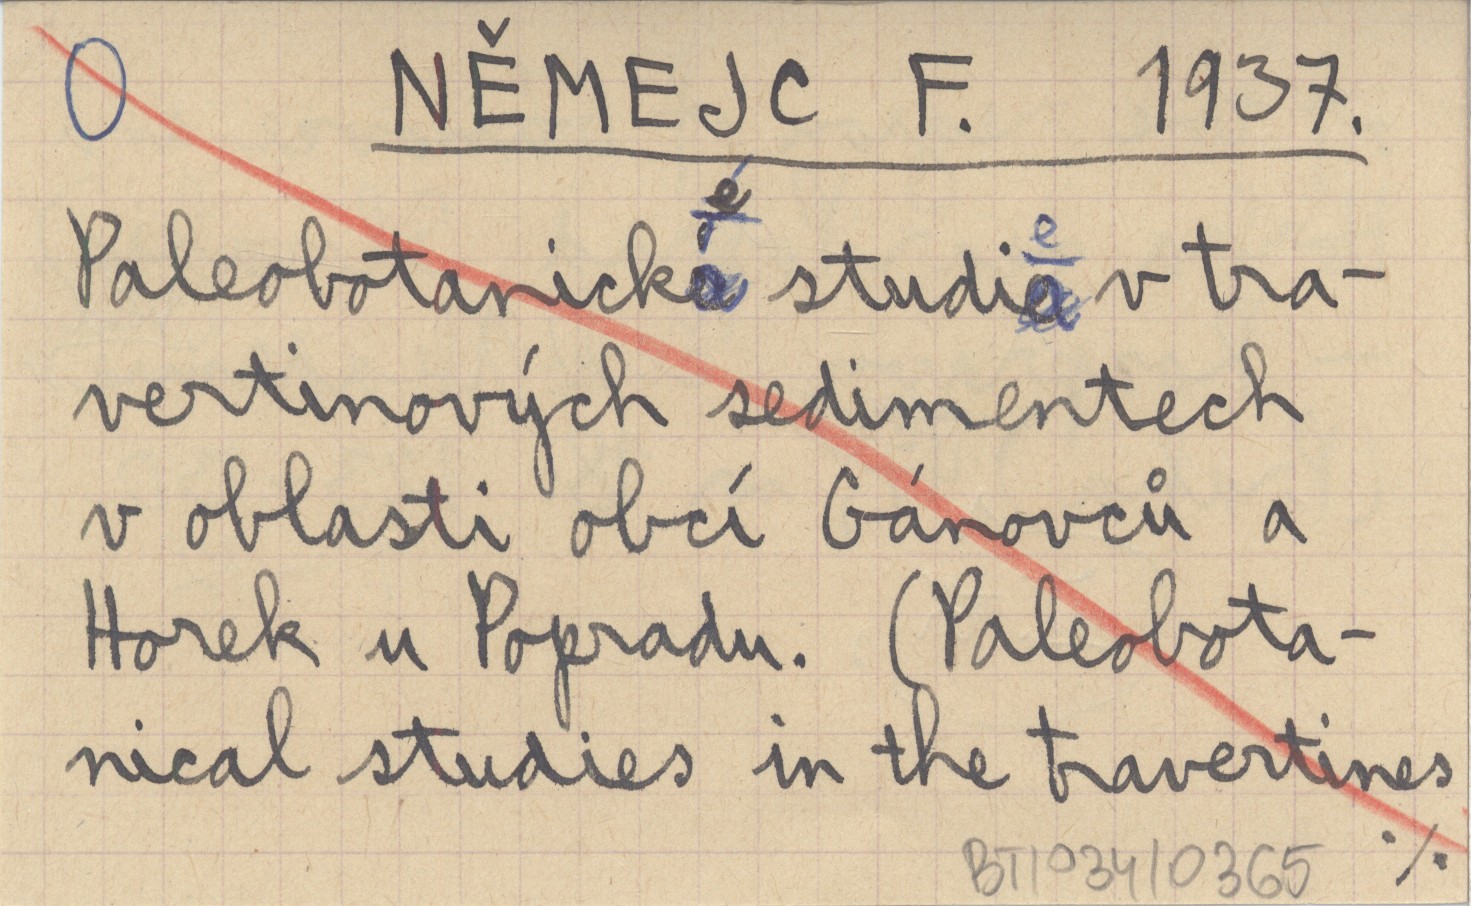 NĚMEJC F. 1937.
Paleobotanické studie v tra-
vertinových sedimentech
v oblasti obcí Gánovců a
Horek u Popradu. (Paleobota-
nical studies in the travertines
BT/034/0365 ·/.